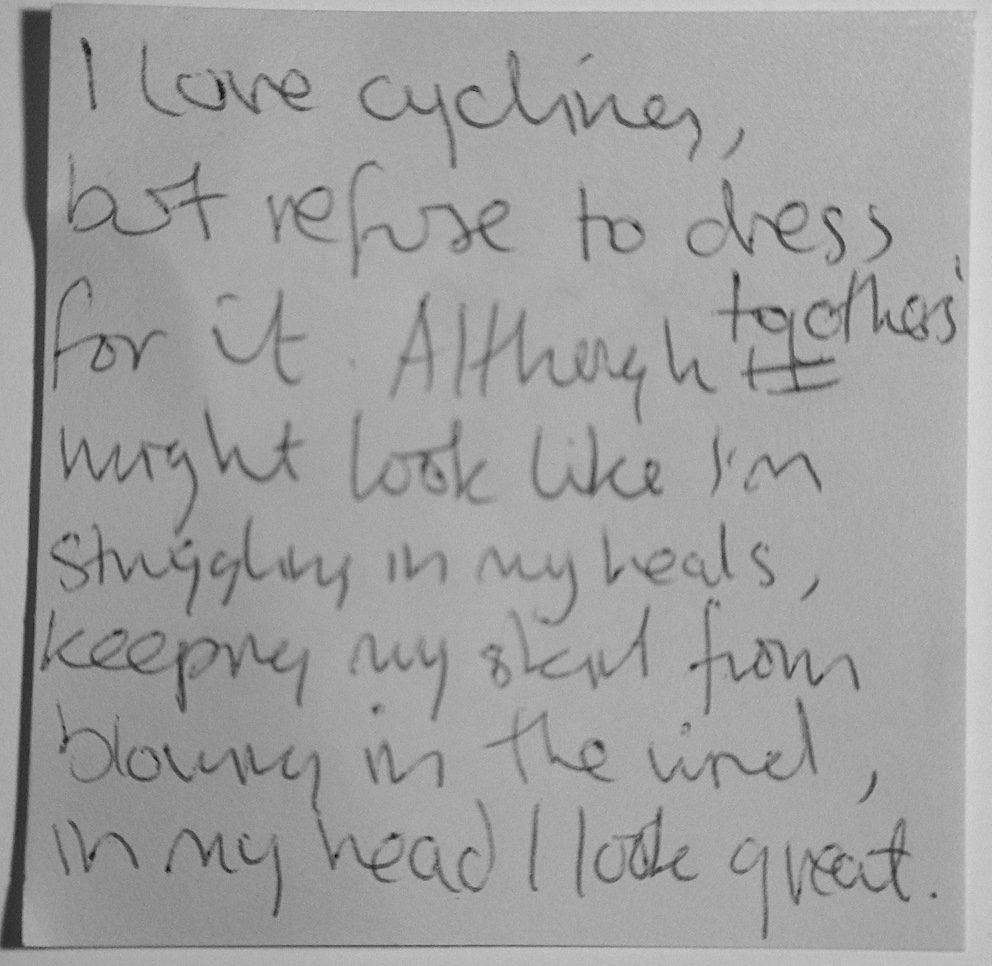 I love cycling,
but refuse to dress
for it. Although to others
might look like I'm
struggling in my heals,
keeping my skirt from
blowing in the wind,
in my head I look great.